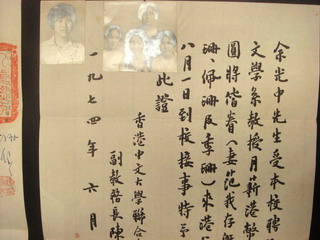 余光中先生受本校聘
文學系教授月薪港幣
圓將偕眷（妻范我存
珊、佩珊及季珊）來港
八月一日到校接事特予
此證
香港中文大學聯合
副教務長陳
一九七四年六月